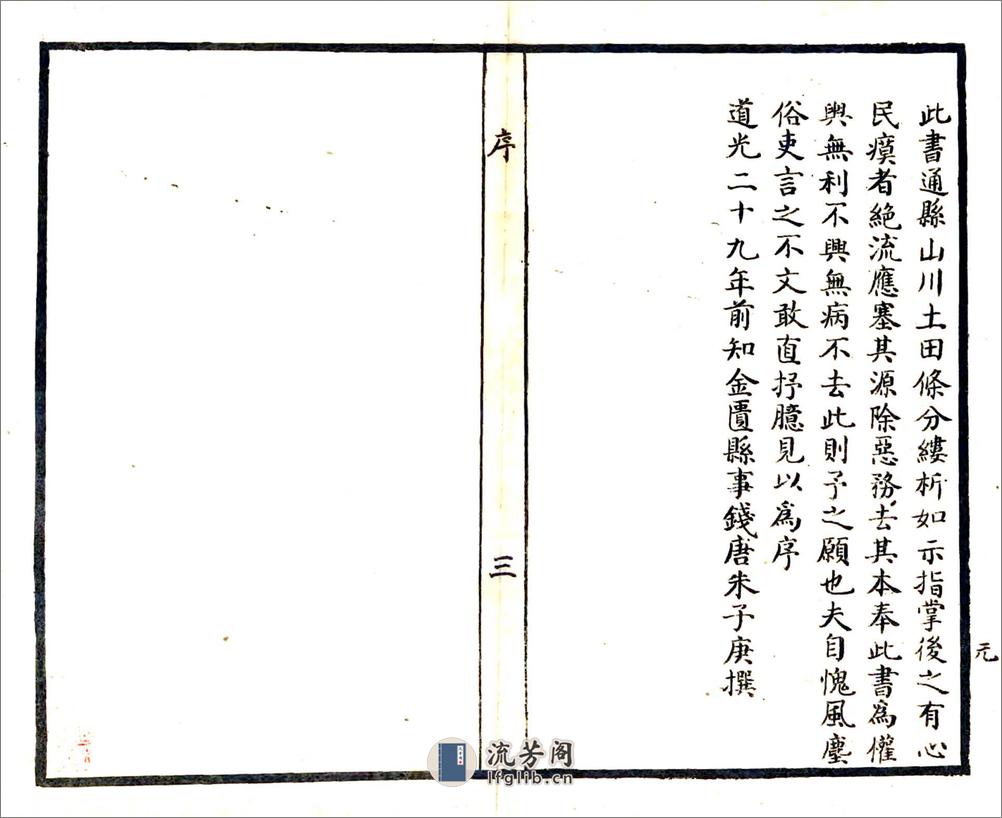 此書通縣山川土田條分縷析如示指掌後之有心
民瘼者絶流應塞其源除惡務去其本奉此書為懽
輿無利不興無病不去此則予之願也夫自愧風塵
俗吏言之不文敢直抒臆見以為序
道光二十九年前知金匱縣事錢唐朱子庚撰
元
序
三
流芳阁
lfglib.cn